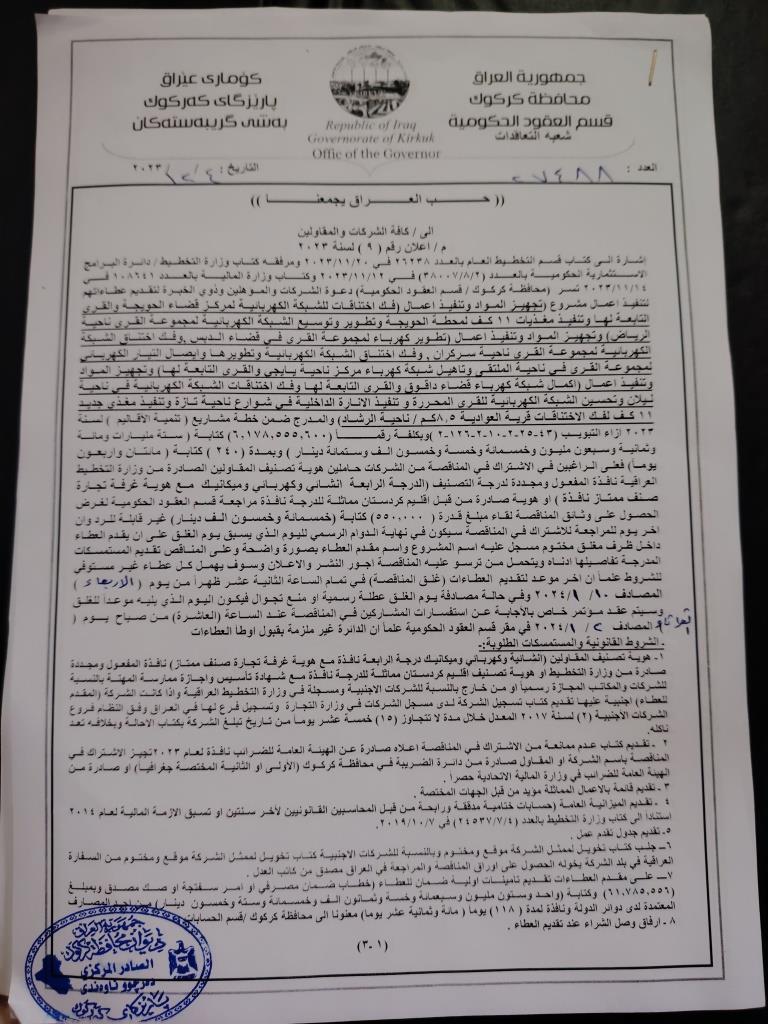 جمهورية العراق
محافظة كركوك
قسم العقود الحكومية
شعبة التعاقدات
Republic of Iraq
Governorate of Kirkuk
Office of the Governor
كۆماری عێراق
پارێزگای كەركوك
بەشی گرێبەستەكان
العدد : ٢٧٤٨٨
التاريخ : / / ٢٠٢٣
(( حـب العـراق يجمعنـا ))
الى / كافة الشركات والمقاولين
م / اعلان رقم ( ٩ ) لسنة ٢٠٢٣
إشارة الى كتاب قسم التخطيط العام بالعدد ٢٦٢٣٨ في ٢٠٢٣/١١/٢٠ ومرفقه كتاب وزارة التخطيط / دائرة البرامج
الاستثمارية الحكومية بالعدد (٣٨٠٠٧/٨/٢) في ٢٠٢٣/١١/١٢ وكتاب وزارة المالية بالعدد ١٠٨٦٤١ في
٢٠٢٣/١١/١٤ تسر (محافظة كركوك / قسم العقود الحكومية) دعوة الشركات والموهلين وذوي الخبرة لتقديم عطاءاتهم
لتنفيذ اعمال مشروع (تجهيز المواد وتنفيذ اعمال (فك اختناقات للشبكة الكهربائية لمركز قضاء الحويجة والقرى
التابعة لها وتنفيذ مغذيات ١١ كف لمحطة الحويجة وتطوير وتوسيع الشبكة الكهربائية لمجموعة القرى ناحية
الرياض) وتجهيز المواد وتنفيذ اعمال (تطوير كهرباء لمجموعة القرى في قضاء الدبس ,وفك اختناق الشبكة
الكهربائية لمجموعة القرى ناحية سركران , وفك اختناق الشبكة الكهربائية وتطويرها وايصال التيار الكهربائي
لمجموعة القرى في ناحية الملتقى وتاهيل شبكة كهرباء مركز ناحية يايجي والقرى التابعة لها) وتجهيز المواد
وتنفيذ اعمال (اكمال شبكة كهرباء قضاء داقوق والقرى التابعة لها وفك اختناقات الشبكة الكهربائية في ناحية
ليلان وتحسين الشبكة الكهربائية للقرى المحررة و تنفيذ الانارة الداخلية في شوارع ناحية تازة وتنفيذ مغذي جديد
١١ كف لفك الاختناقات قرية العوادية ٨,٥كم / ناحية الرشاد) والمدرج ضمن خطة مشاريع (تنمية الأقاليم ) لسنة
٢٠٢٣ ازاء التبويب (٤٣-٢٥-٢-١٠-٢-١٢٦-٢) وبكلفة رقماً (٦,١٧٨,٥٥٥,٦٠٠) كتابة ( ستة مليارات ومائة
وثمانية وسبعون مليون وخمسمائة وخمسة وخمسون الف وستمائة دينار ) وبمدة (٢٤٠) كتابة ( مائتان واربعون
يوماً) فعلى الراغبين في الاشتراك في المناقصة من الشركات حاملين هوية تصنيف المقاولين الصادرة من وزارة التخطيط
العراقية نافذة المفعول ومجددة لدرجة التصنيف (الدرجة الرابعة انشائي وكهربائي وميكانيك مع هوية غرفة تجارة
صنف ممتاز نافذة ) او هوية صادرة من قبل اقليم كردستان مماثلة للدرجة نافذة مراجعة قسم العقود الحكومية لغرض
الحصول على وثائق المناقصة لقاء مبلغ قدرة (٥٥٠,٠٠٠) كتابة (خمسمائة وخمسون الف دينار) غير قابلة للرد وان
اخر يوم للمراجعة للاشتراك في المناقصة سيكون في نهاية الدوام الرسمي لليوم الذي يسبق يوم الغلق على ان يقدم العطاء
داخل ظرف مغلق مختوم مسجل عليه اسم المشروع واسم مقدم العطاء بصورة واضحة وعلى المناقص تقديم المستمسكات
المدرجة تفاصيلها ادناه ويتحمل من ترسو عليه المناقصة اجور النشر والاعلان وسوف يهمل كل عطاء غير مستوفي
للشروط علماً ان اخر موعد لتقديم العطاءات (غلق المناقصة) في تمام الساعة الثانية عشر ظهراً من يوم ( الاربعاء )
المصادف ١٠/ ١ /٢٠٢٤ وفي حالة مصادفة يوم الغلق عطلة رسمية او منع تجوال فيكون اليوم الذي يليه موعداً للغلق
وسيتم عقد مؤتمر خاص بالأجابة عن استفسارات المشاركين في المناقصة عند الساعة (العاشرة) من صباح يوم (
الثلاثاء ) المصادف ٢ / ١ /٢٠٢٤ في مقر قسم العقود الحكومية علماً ان الدائرة غير ملزمة بقبول اوطا العطاءات
ـ الشروط القانونية والمستمسكات الطلوبة:-
١- هوية تصنيف المقاولين (انشائية وكهربائي وميكانيك درجة الرابعة نافذة مع هوية غرفة تجارة صنف ممتاز) نافذة المفعول ومجددة
صادرة من وزارة التخطيط او هوية تصنيف اقليم كردستان مماثلة للدرجة نافذة مع شهادة تأسيس واجازة ممارسة المهنة بالنسبة
للشركات والمكاتب المجازة رسمياً او من خارج بالنسبة للشركات الاجنبية ومسجلة في وزارة التخطيط العراقية واذا كانت الشركة (المقدم
للعطاء) اجنبية عليها تقديم كتاب تسجيل الشركة لدى مسجل الشركات في وزارة التجارة وتسجيل فرع لها في العراق وفق النظام فروع
الشركات الاجنبية (٢) لسنة ٢٠١٧ المعدل خلال مدة لا تتجاوز (١٥) خمسة عشر يوما من تاريخ تبلغ الشركة بكتاب الاحالة وبخلافه تعد
ناكله.
٢ - تقديم كتاب عدم ممانعة من الاشتراك في المناقصة اعلاه صادرة عن الهيئة العامة للضرائب نافذة لعام ٢٠٢٣تجيز الاشتراك في
المناقصة باسم الشركة او المقاول صادرة من دائرة الضريبة في محافظة كركوك (الأولى او الثانية المختصة جغرافيا) او صادرة من
الهيئة العامة للضرائب في وزارة المالية الاتحادية حصراً .
٣ - تقديم قائمة بالاعمال المماثلة مؤيد من قبل الجهات المختصة .
٤ - تقديم الميزانية العامة (حسابات ختامية مدققة ورابحة من قبل المحاسبين القانونيين لآخر سنتين او تسبق الازمة المالية لعام ٢٠١٤
استناداً الى كتاب وزارة التخطيط بالعدد (٢٤٥٣٧/٧/٤) في ٢٠١٩/١٠/٧.
٥- تقديم جدول تقدم عمل .
٦ - جلب كتاب تخويل لممثل الشركة موقع ومختوم وبالنسبة للشركات الاجنبية كتاب تخويل لممثل الشركة موقع ومختوم من السفارة
العراقية في بلد الشركة يخوله الحصول على اوراق المناقصة والمراجعة في العراق مصدق من كاتب العدل .
٧ – على مقدم العطاءات تقديم تامينات اولية ضمان للعطاء (خطاب ضمان مصرفي او امر سفتجة او صك مصدق وبمبلغ
(٦١,٧٨٥,٥٥٦) وكتابة (واحد وستون مليون وسبعمائة وخمسة وثمانون الف وخمسمائة وستة وخمسون دينار) من احد المصارف
المعتمدة لدى دوائر الدولة ونافذة لمدة (١١٨) يوما ( مائة وثمانية عشر يوما) معنونا الى محافظة كركوك /قسم الحسابات
٨ - ارفاق وصل الشراء عند تقديم العطاء .
(٣-١)
جمهورية العراق
الصادر المركزي
دەرچووی ناوەندی